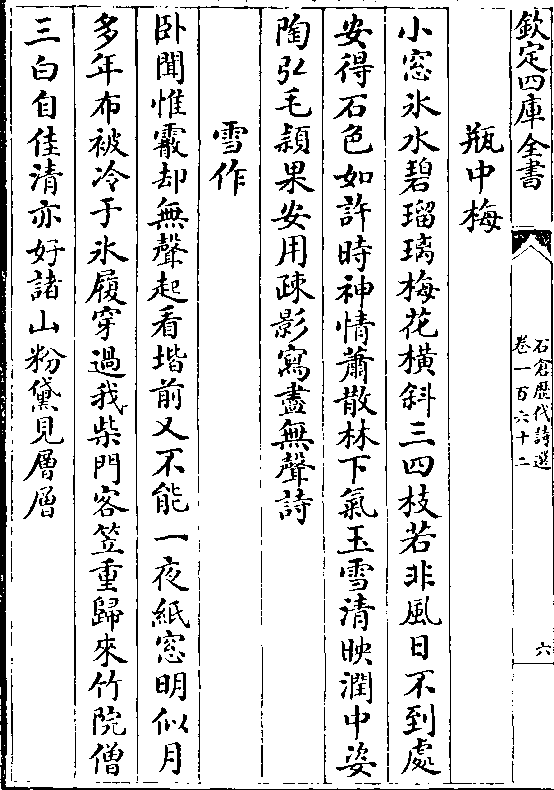 欽定四庫全書
石倉歷代詩選
卷一百六十二
六
瓶中梅
小窓氷水碧瑠璃梅花橫斜三四枝若非風日不到處
安得石色如許時神情蕭散林下氣玉雪清映潤中姿
陶弘毛頴果安用疎影寫盡無聲詩
雪作
卧聞惟霰却無聲起看堦前又不能一夜紙窓明似月
多年布被冷于氷履穿過我柴門客笠重歸來竹院僧
三白自佳清亦好諸山粉黛見層層